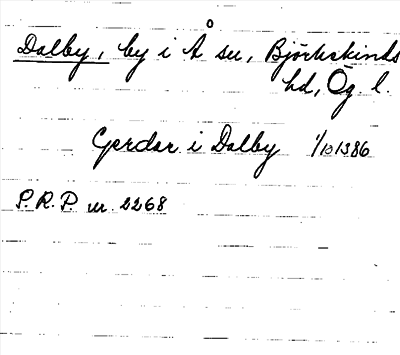 Dalby, by i Å sn, Björkekinds
hd, Ög l.
Gerdar i Dalby 1/10 1386
P.R.P. nr 2268